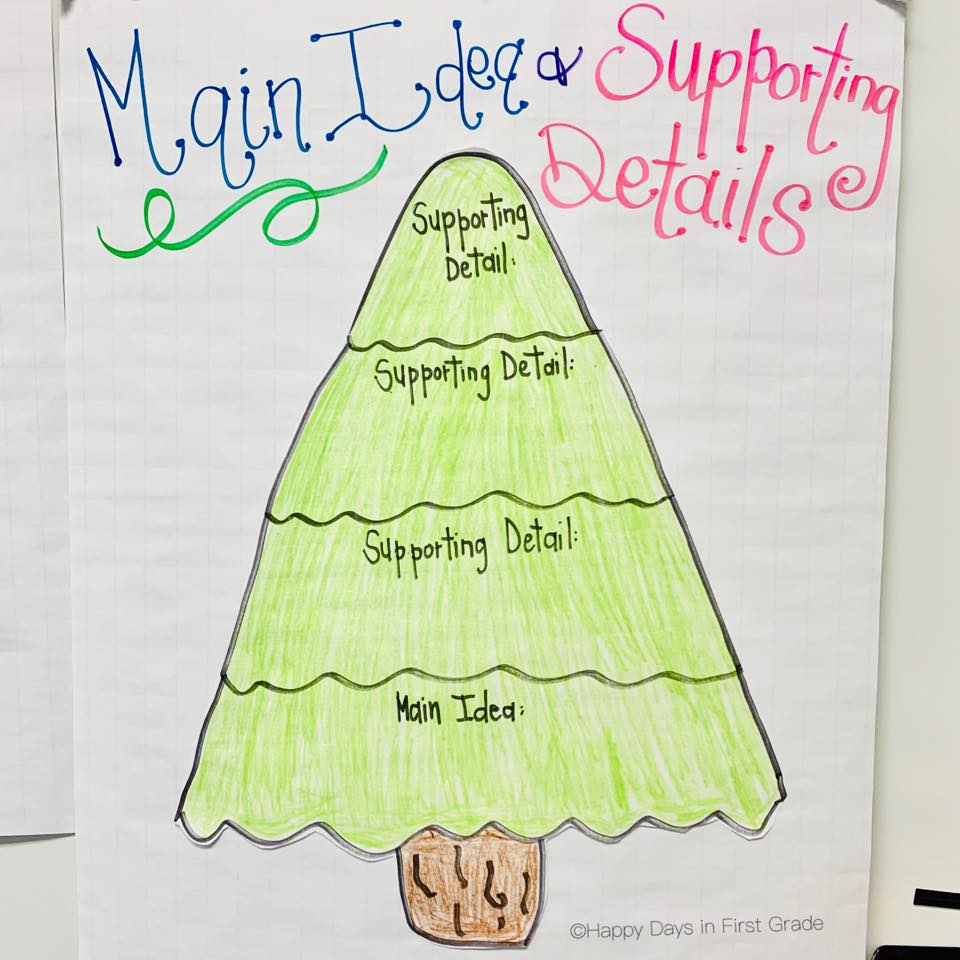 Main Idea & Supporting
Details
Supporting
Detail:
Supporting Detail:
Supporting Detail:
Main Idea:
©Happy Days in First Grade